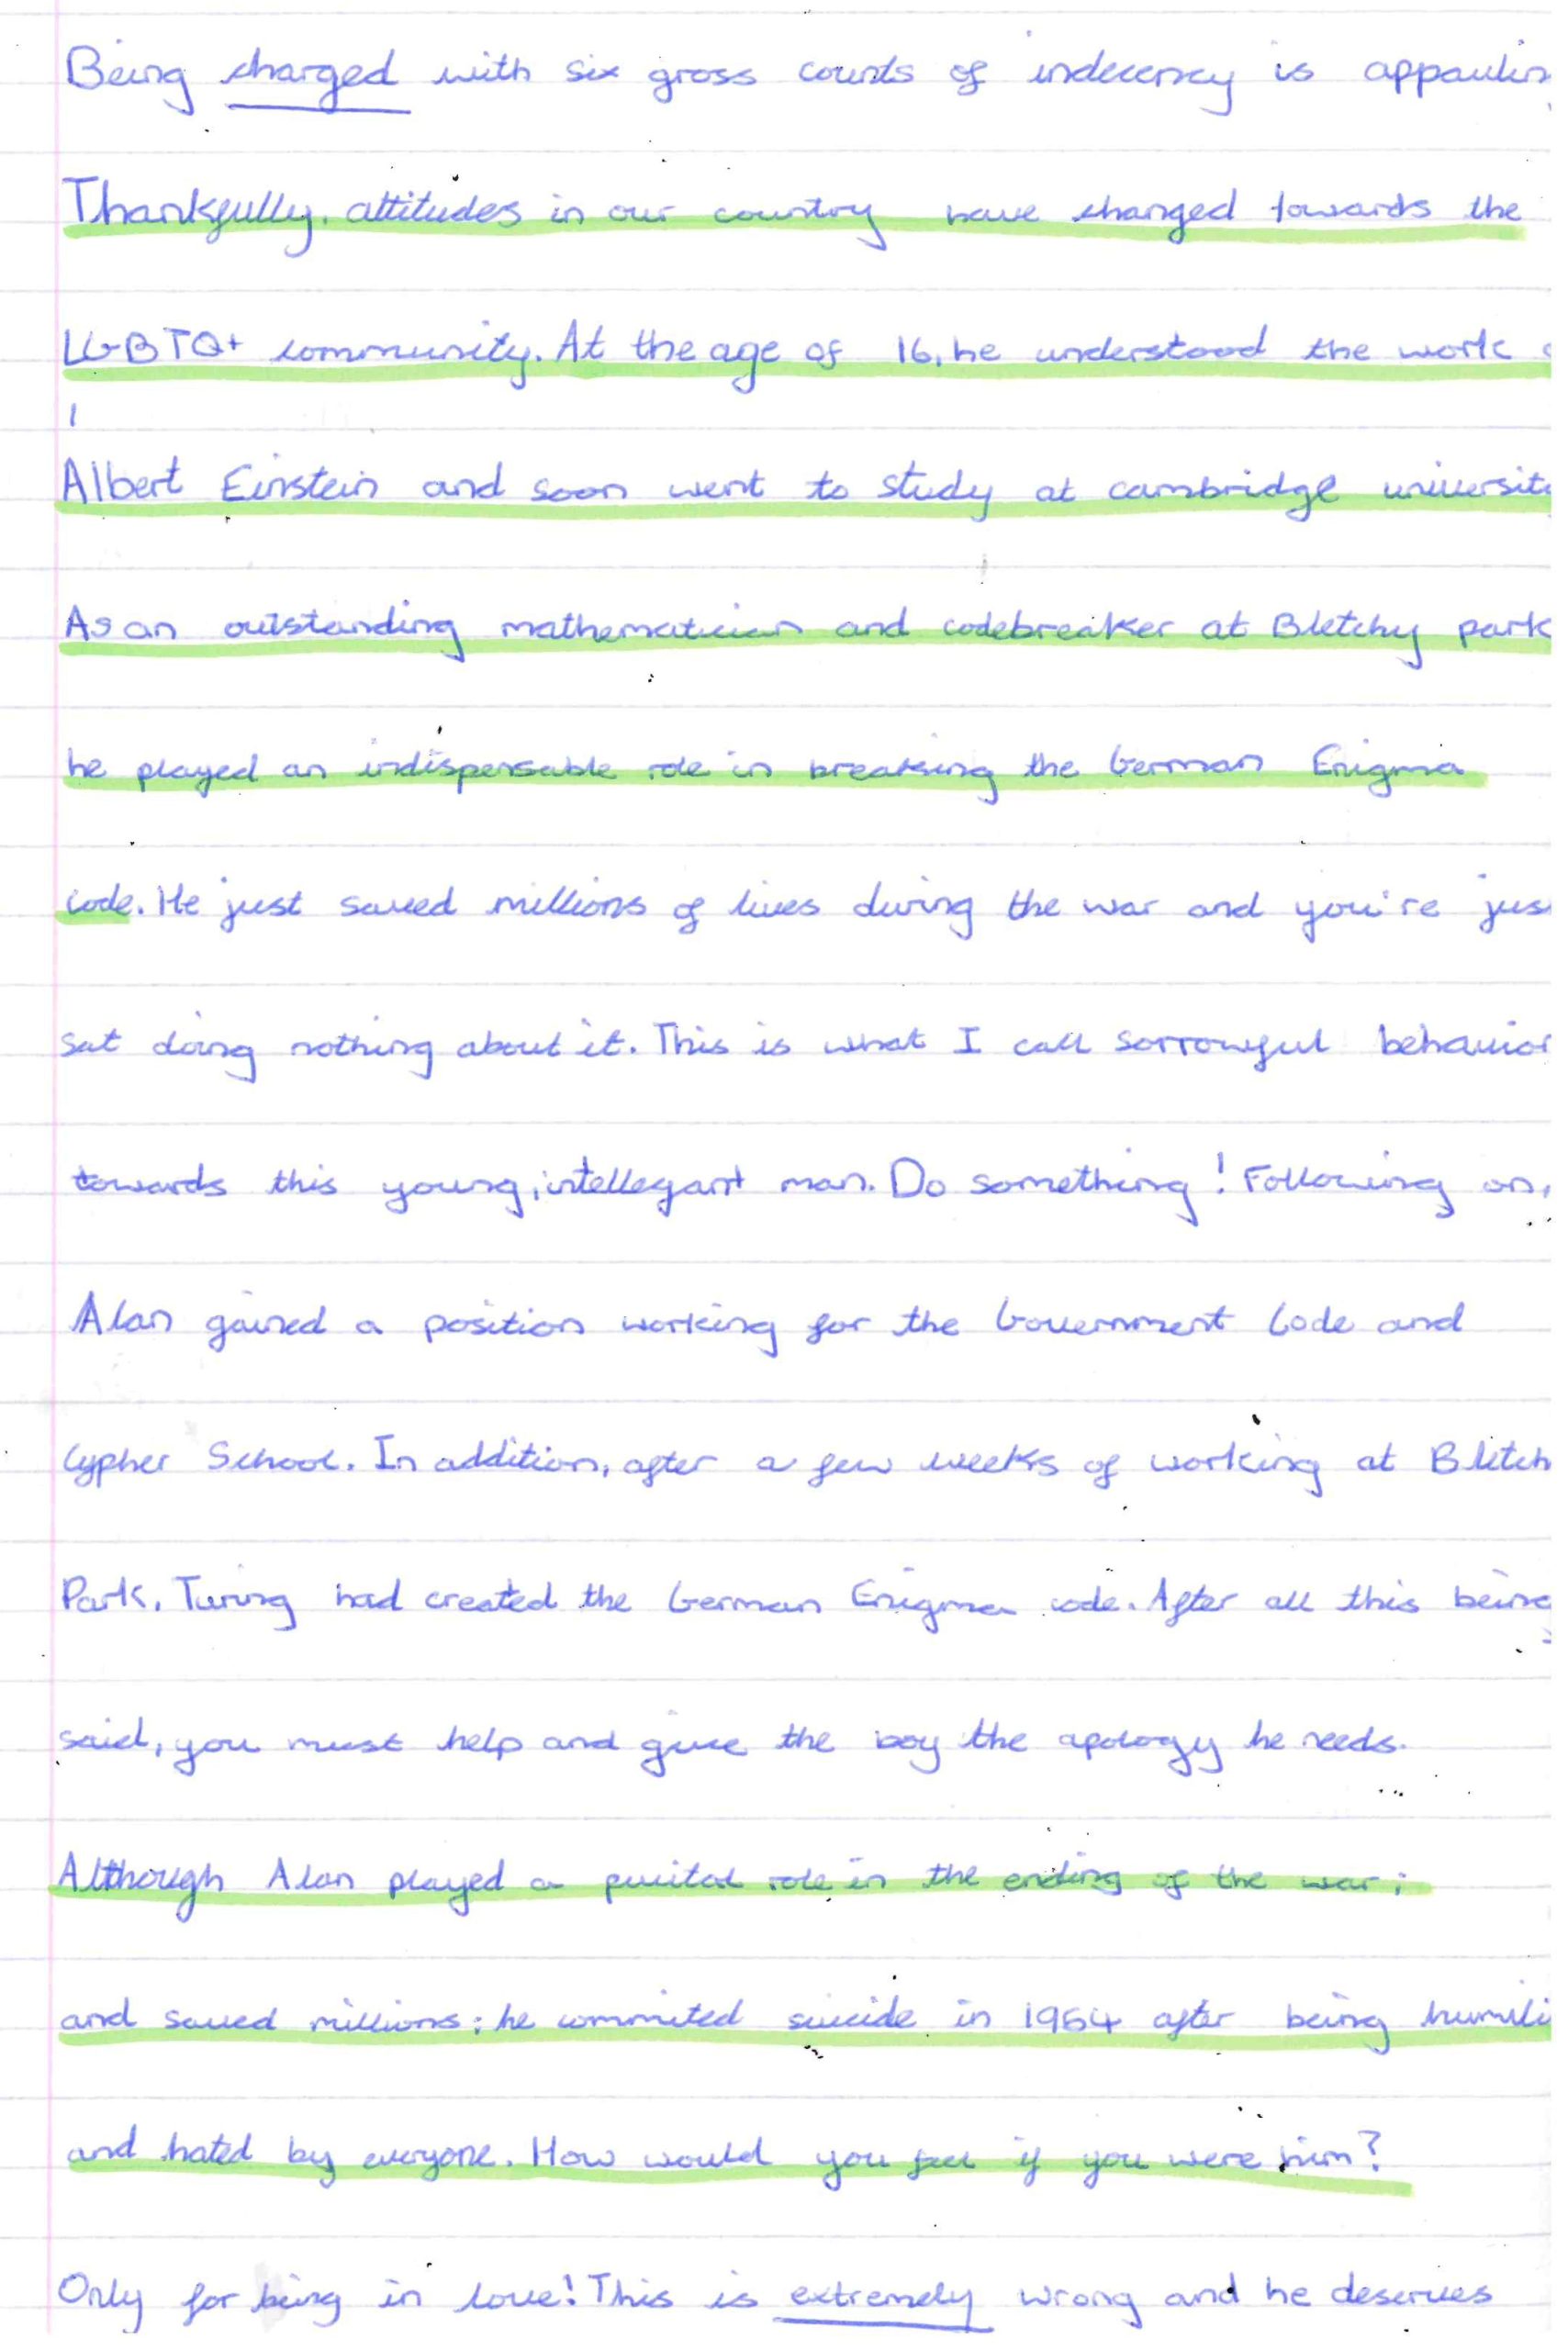 Being charged with six gross counts of indecency is appaulin
Thankfully, attitudes in our country have changed towards the
LGBTQ+ community. At the age of 16, he understood the work o
Albert Einstein and soon went to study at cambridge universit
As an outstanding mathematician and codebreaker at Bletchy park
he played an indispensable role in breaking the German Enigma
code. He just saved millions of lives during the war and you're jus
sat doing nothing about it. This is what I call sorrowful behavior
towards this young, intellegant man. Do something! Following on,
Alan gained a position working for the Government Code and
Cypher School. In addition, after a few weeks of working at Bletch
Park, Turing had created the German Enigma code. After all this being
said, you must help and give the boy the apology he needs.
Although Alan played a puvital role in the ending of the war;
and saved millions; he commited suicide in 1954 after being humili
and hated by everyone. How would you feel if you were him?
Only for being in love! This is extremely wrong and he deserves